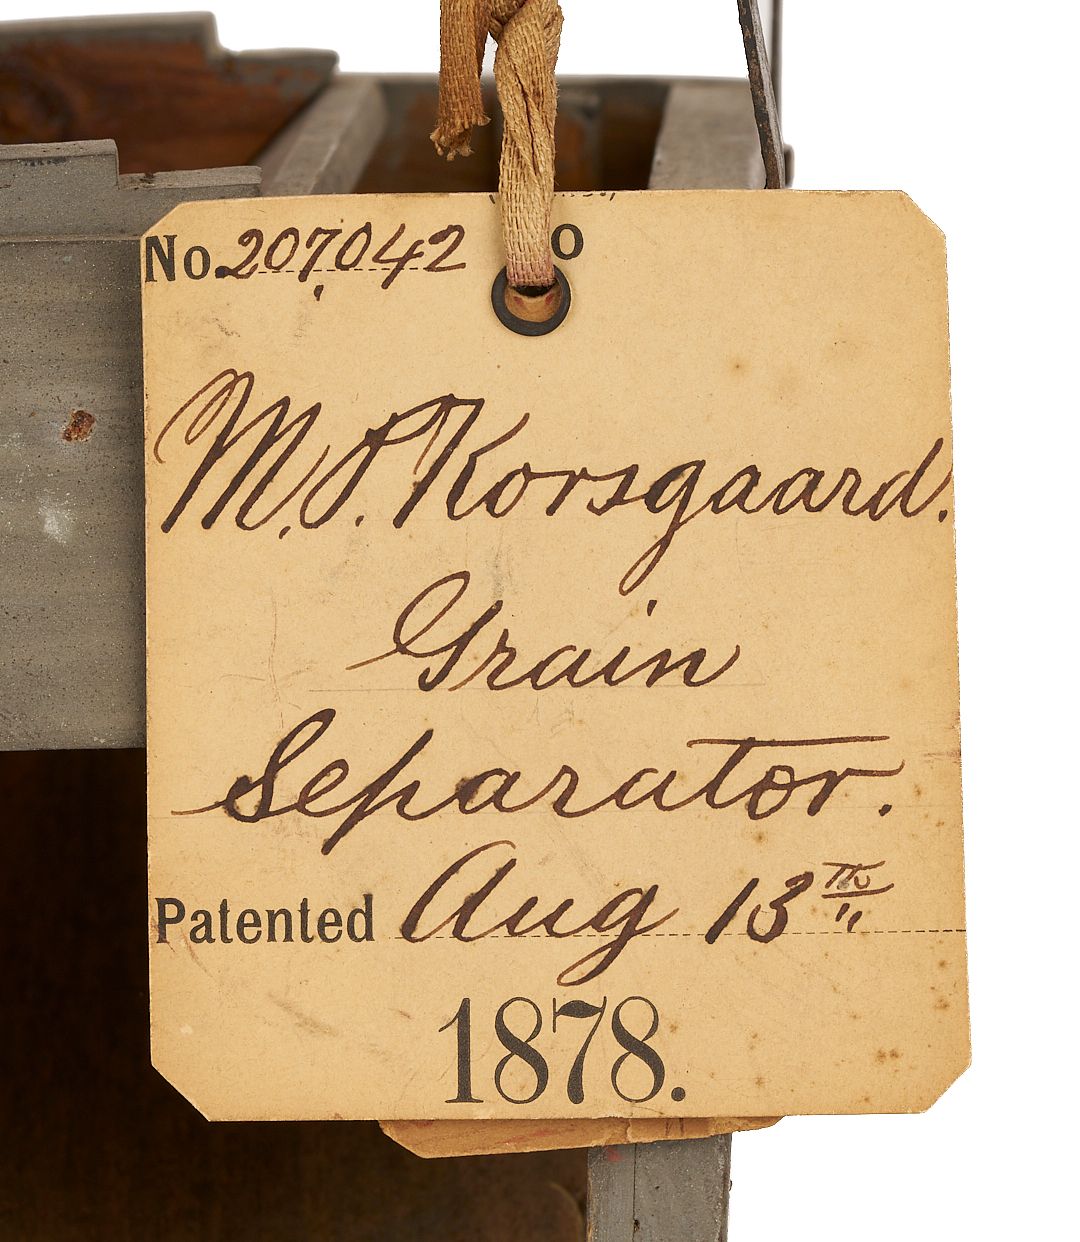 No. 207,042 o
M. P. Korsgaard.
Grain
Separator.
Patented Aug 13th
1878.